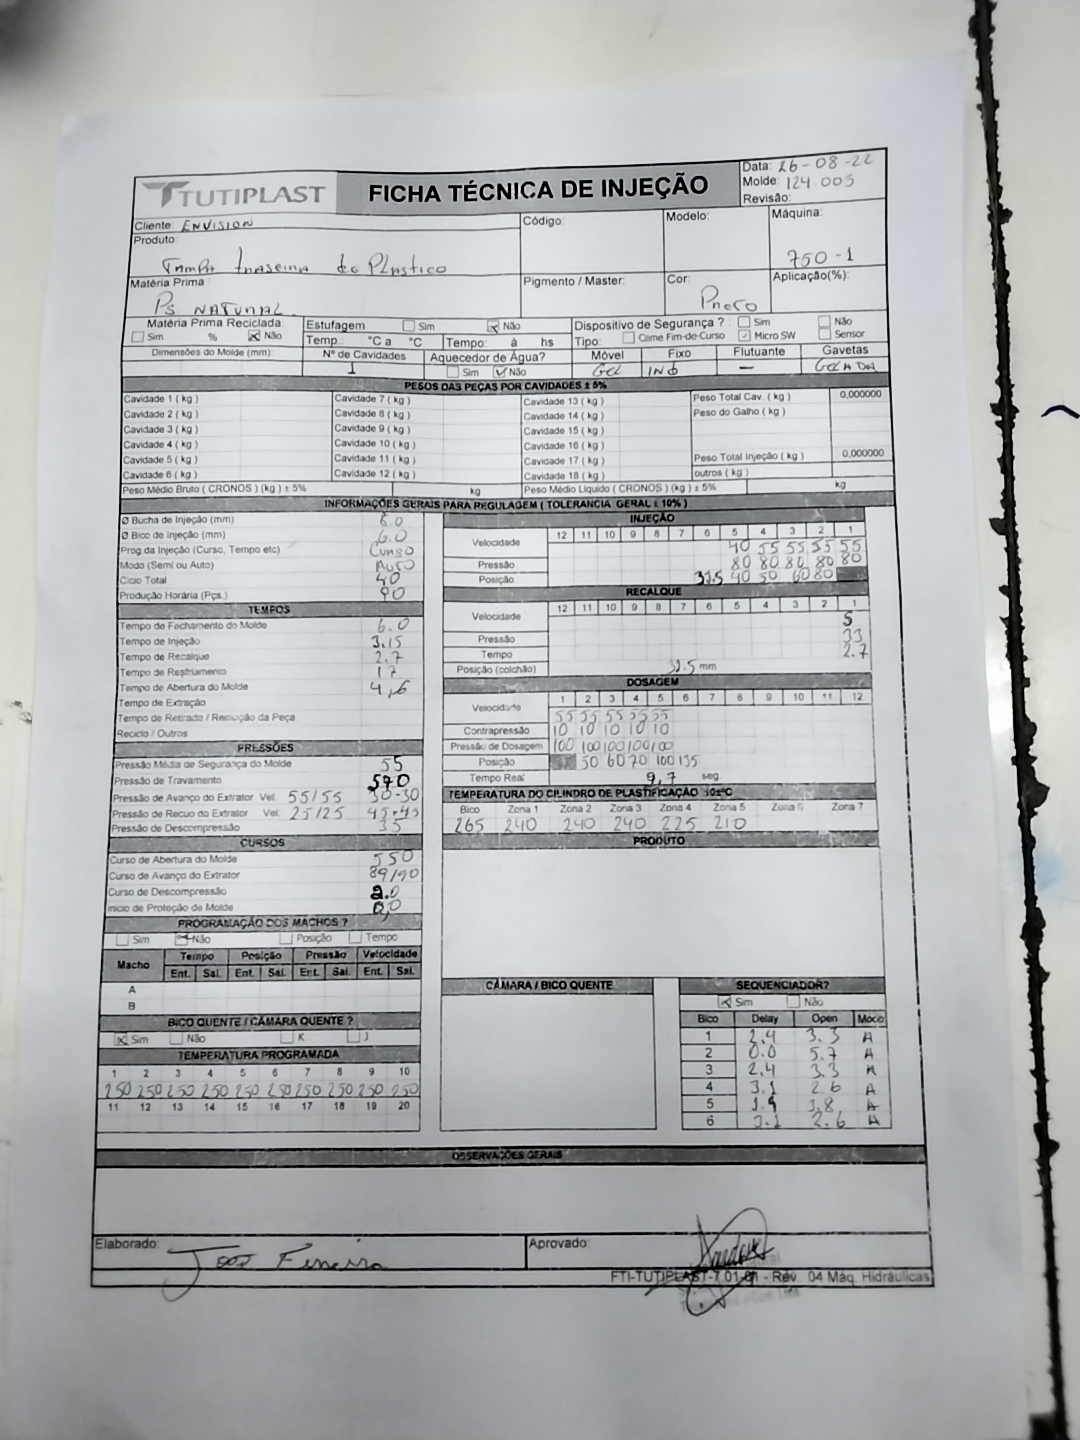 TUTIPLAST
FICHA TÉCNICA DE INJEÇÃO
Data: 26-08-22
Molde: 124.005
Revisão:
Cliente: ENVISION
Código:
Modelo:
Máquina:
750-1
Produto:
Tampa traseira de Plastico
Matéria Prima:
PS NATURAL
Pigmento / Master:
Cor:
Preto
Aplicação(%):
Matéria Prima Reciclada:
Sim % Não
Estufagem Sim Não
Temp.: °C a °C Tempo: à hs
Dispositivo de Segurança ? Sim Não
Tipo: Came Fim-de-Curso Micro SW Sensor
Dimensões do Molde (mm):
Nº de Cavidades
1
Aquecedor de Água?
Sim Não
Móvel Fixo Flutuante Gavetas
GEL IND — GELADA
PESOS DAS PEÇAS POR CAVIDADES ± 5%
Cavidade 1 ( kg ) Cavidade 7 ( kg ) Cavidade 13 ( kg ) Peso Total Cav. ( kg ) 0,000000
Cavidade 2 ( kg ) Cavidade 8 ( kg ) Cavidade 14 ( kg ) Peso do Galho ( kg )
Cavidade 3 ( kg ) Cavidade 9 ( kg ) Cavidade 15 ( kg )
Cavidade 4 ( kg ) Cavidade 10 ( kg ) Cavidade 16 ( kg )
Cavidade 5 ( kg ) Cavidade 11 ( kg ) Cavidade 17 ( kg ) Peso Total Injeção ( kg ) 0,000000
Cavidade 6 ( kg ) Cavidade 12 ( kg ) Cavidade 18 ( kg ) outros ( kg )
Peso Médio Bruto ( CRONOS ) (kg ) ± 5% kg Peso Médio Liquido ( CRONOS ) (kg) ± 5% kg
INFORMAÇÕES GERAIS PARA REGULAGEM ( TOLERANCIA GERAL ± 10% )
Ø Bucha de Injeção (mm) 6.0
Ø Bico de Injeção (mm) 6.0
Prog da Injeção (Curso, Tempo etc) Curso
Modo (Semi ou Auto) Auto
Ciclo Total 40
Produção Horária (Pçs.) 90
TEMPOS
Tempo de Fechamento do Molde 6.0
Tempo de Injeção 3.15
Tempo de Recalque 2.7
Tempo de Resfriamento 17
Tempo de Abertura do Molde 4,6
Tempo de Extração
Tempo de Retirado / Remoção da Peça
Reciclo / Outros
PRESSÕES
Pressão Média de Segurança do Molde 55
Pressão de Travamento 570
Pressão de Avanço do Extrator Vel: 55/55 30-30
Pressão de Recuo do Extrator Vel: 25/25 45-45
Pressão de Descompressão 35
CURSOS
Curso de Abertura do Molde 550
Curso de Avanço do Extrator 89/90
Curso de Descompressão 2.0
Inicio de Proteção de Molde
PROGRAMAÇÃO DOS MACHOS ?
Sim Não Posição Tempo
Macho Tempo Posição Pressão Velocidade
Ent. Sai. Ent. Sai. Ent. Sai. Ent. Sai.
A
B
BICO QUENTE / CÂMARA QUENTE ?
Sim Não K J
TEMPERATURA PROGRAMADA
1 2 3 4 5 6 7 8 9 10
250 250 250 250 250 250 250 250 250 250
11 12 13 14 15 16 17 18 19 20
INJEÇÃO
12 11 10 9 8 7 6 5 4 3 2 1
Velocidade 40 55 55 55 55
Pressão 80 80 80 80 80
Posição 32.5 40 50 60 80
RECALQUE
12 11 10 9 8 7 6 5 4 3 2 1
Velocidade 5
Pressão 33
Tempo 2.7
Posição (colchão) 32.5 mm
DOSAGEM
1 2 3 4 5 6 7 8 9 10 11 12
Velocidade 55 55 55 55 55
Contrapressão 10 10 10 10 10
Pressão de Dosagem 100 100 100 100 100
Posição 50 60 70 100 135
Tempo Real 9,7 seg
TEMPERATURA DO CILINDRO DE PLASTIFICAÇÃO 10±°C
Bico Zona 1 Zona 2 Zona 3 Zona 4 Zona 5 Zona 6 Zona 7
265 240 240 240 225 210
PRODUTO
CÂMARA / BICO QUENTE
SEQUENCIADOR?
Sim Não
Bico Delay Open Modo
1 2.4 3.3 A
2 0.0 5.7 A
3 2.4 3.3 A
4 3.1 2.6 A
5 1.9 3,8 A
6 3.1 2.6 A
OBSERVAÇÕES GERAIS
Elaborado:
Aprovado:
FTI-TUTIPLAST-7.01-01 - Rev. 04 Máq. Hidráulicas